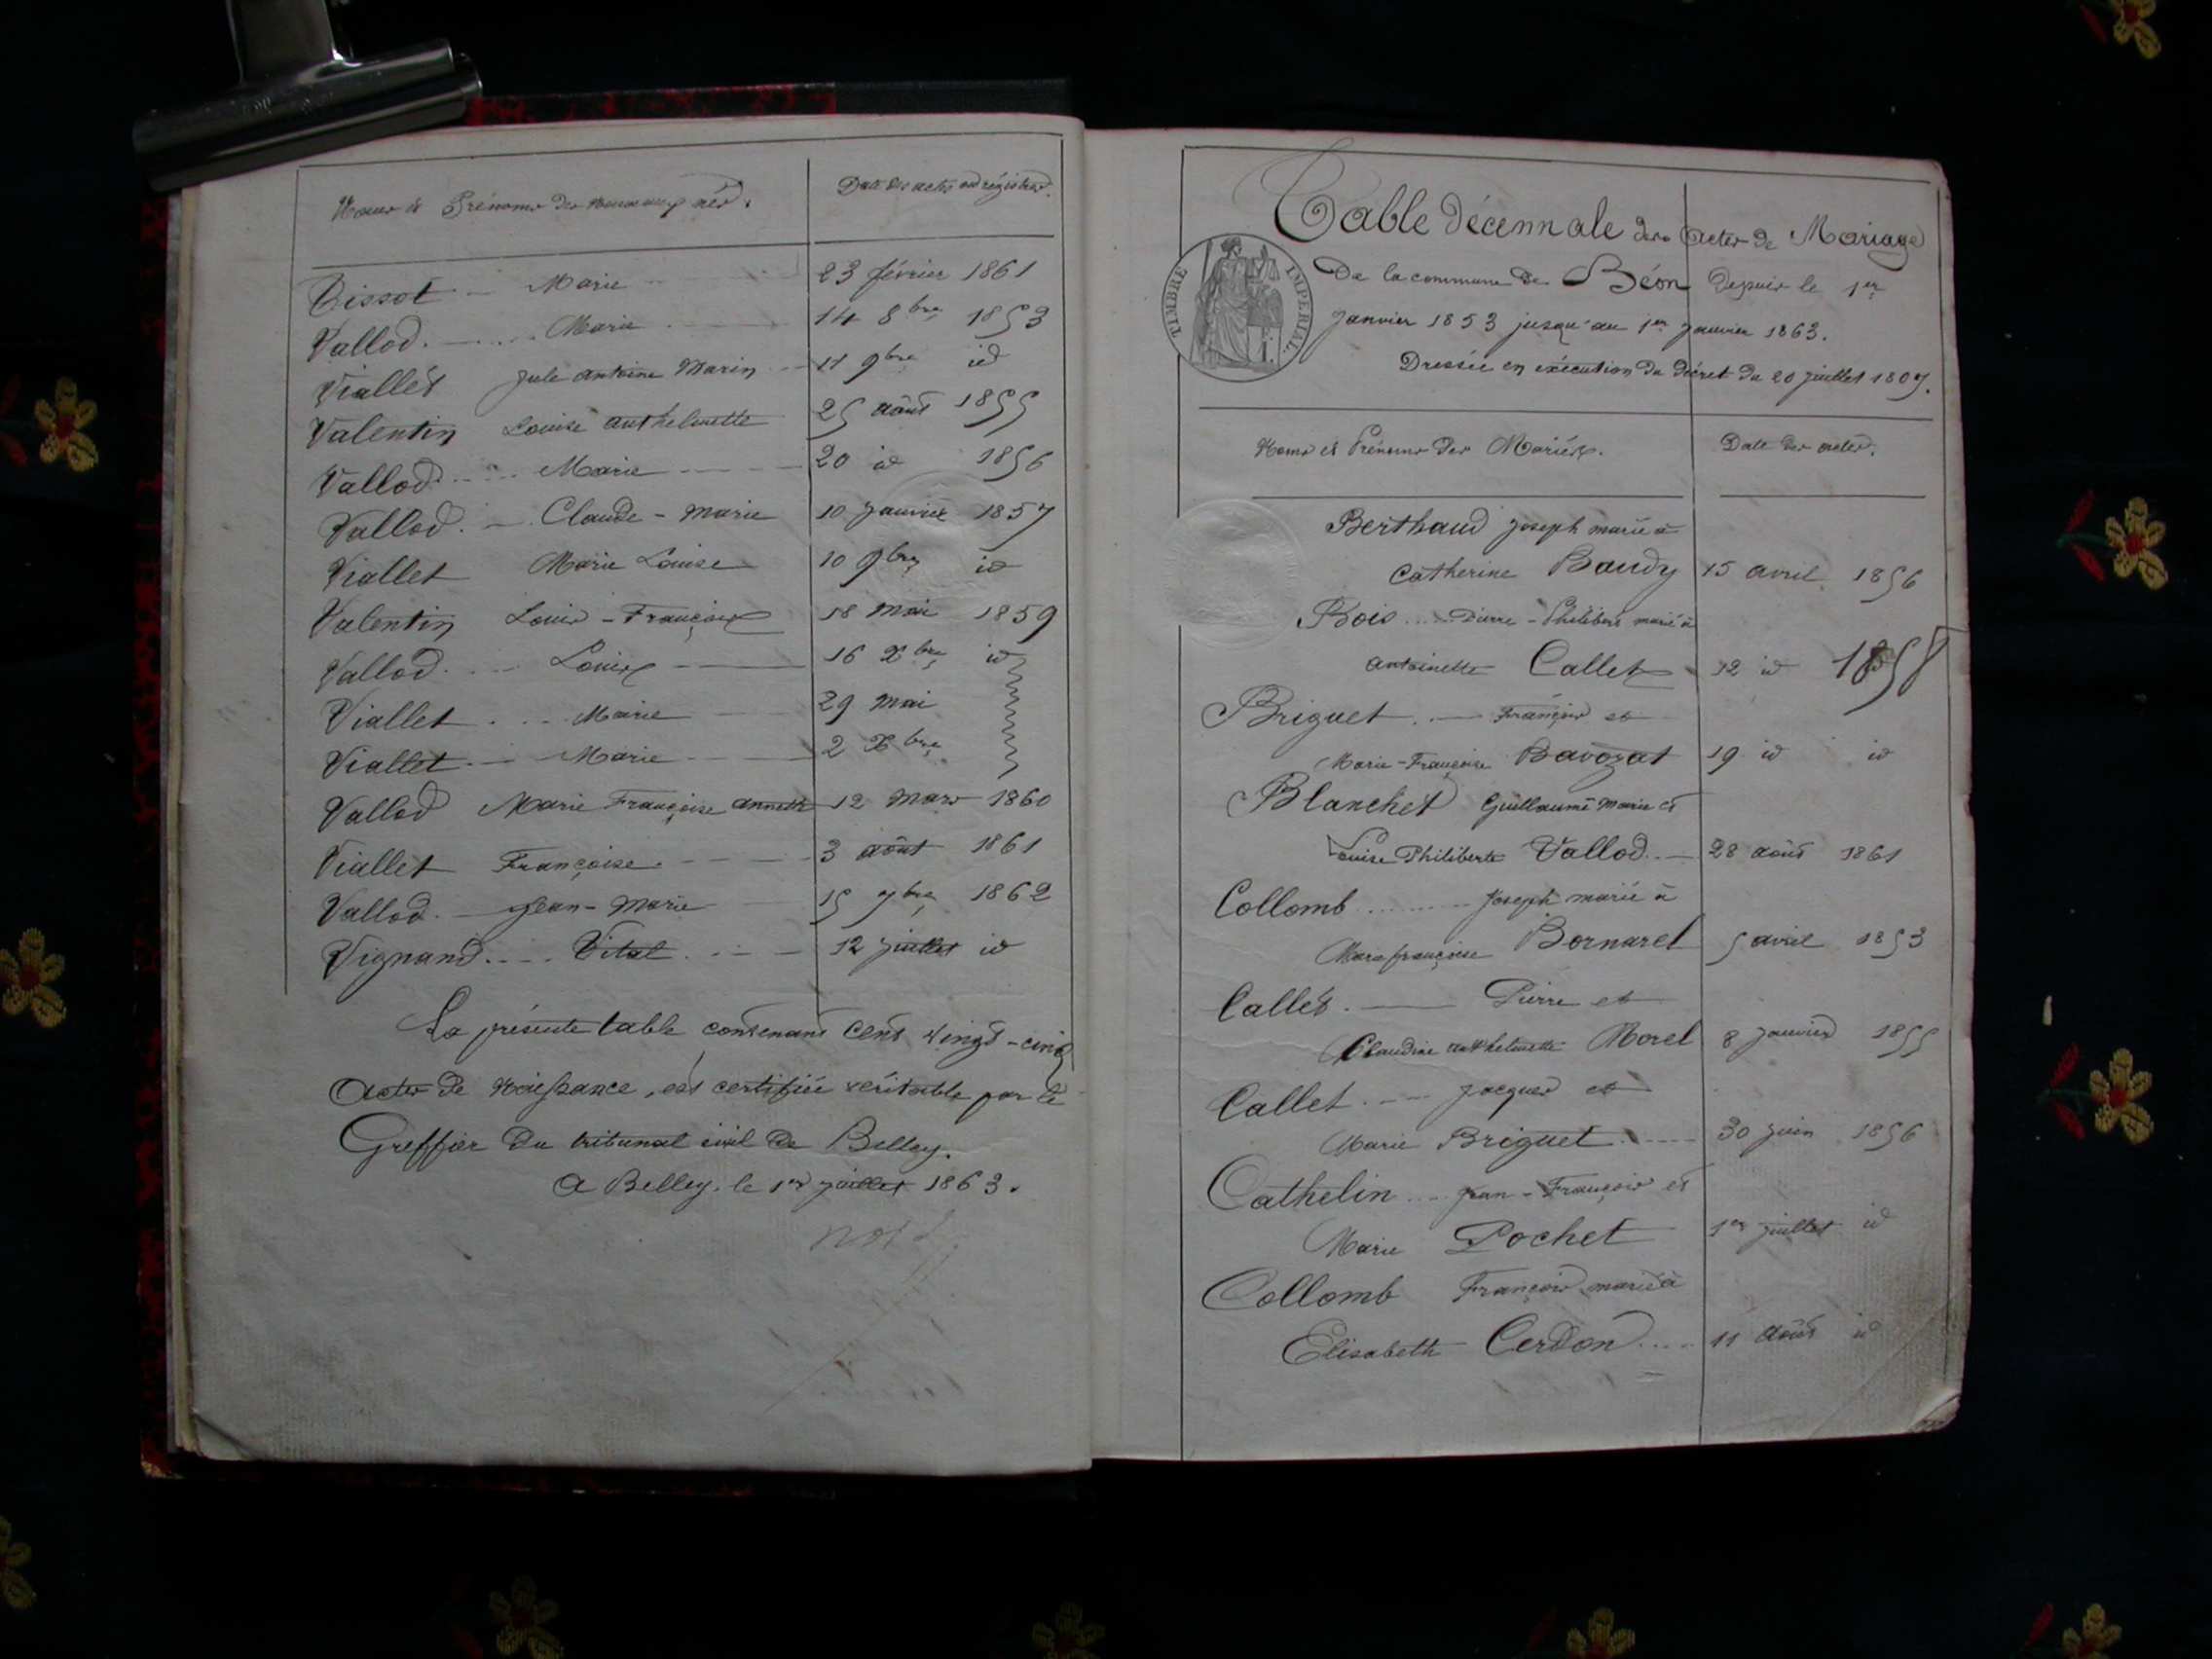 Noms et Prénoms des nouveaux nés.
Date des actes au régistre.
Tissot - Marie 23 février 1861
Vallod. Marie 14 8bre 1853
Viallet Jule antoine Marin 11 9bre id
Valentin Louise anthelmette 25 août 1855
Vallod. Marie 20 id 1856
Vallod. - Claude - Marie 10 Janvier 1857
Viallet Marie Louise 10 9bre id
Valentin Louis - François 18 Mai 1859
Vallod. Louis 16 Xbre id
Viallet Marie 29 Mai
Viallet Marie 2 Xbre
Vallod Marie Françoise annette 12 Mars 1860
Viallet Françoise. 3 août 1861
Vallod. - Jean - Marie 15 7bre 1862
Vignand Vital 12 juillet id
La présente table contenant Cent vingt-cinq
Actes de Naissance, est certifiée véritable par le
Greffier du tribunal civil de Belley.
A Belley, le 1er juillet 1863.
Table décennale des Actes de Mariage
De la commune de Béon depuis le 1er
Janvier 1853 jusqu'au 1er Janvier 1863.
Dressée en exécution du décret du 20 juillet 1807.
TIMBRE IMPERIAL.
Noms et Prénoms des Mariés.
Date des actes.
Berthaud Joseph marié à
Catherine Baudy 15 avril 1856
Bois Pierre - Philibert marié à
antoinette Callet 12 id 1858
Briguet François et
Marie-Françoise Bavozat 19 id id
Blanchet Guillaume Marie et
Louise Philiberte Vallod. 28 août 1861
Collomb Joseph marié à
Marie françoise Bornarel 5 avril 1853
Callet. Pierre et
Claudine anthelmette Morel 8 janvier 1855
Callet Jacques et
Marie Briguet 30 juin 1856
Cathelin Jean - François et
Marie Pochet 1er juillet id
Collomb François marié à
Elisabeth Cerdon 11 août id